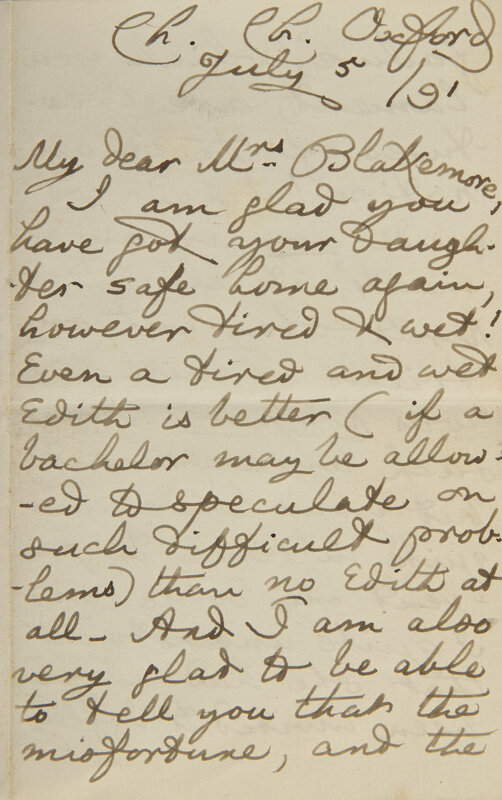 Ch. Ch. Oxford
July 5 /91
My dear Mrs Blakemore,
I am glad you
have got your daugh-
-ter safe home again,
however tired & wet!
Even a tired and wet
Edith is better (if a
bachelor may be allow-
-ed to speculate on
such difficult prob-
-lems) than no Edith at
all. And I am also
very glad to be able
to tell you that the
misfortune, and the